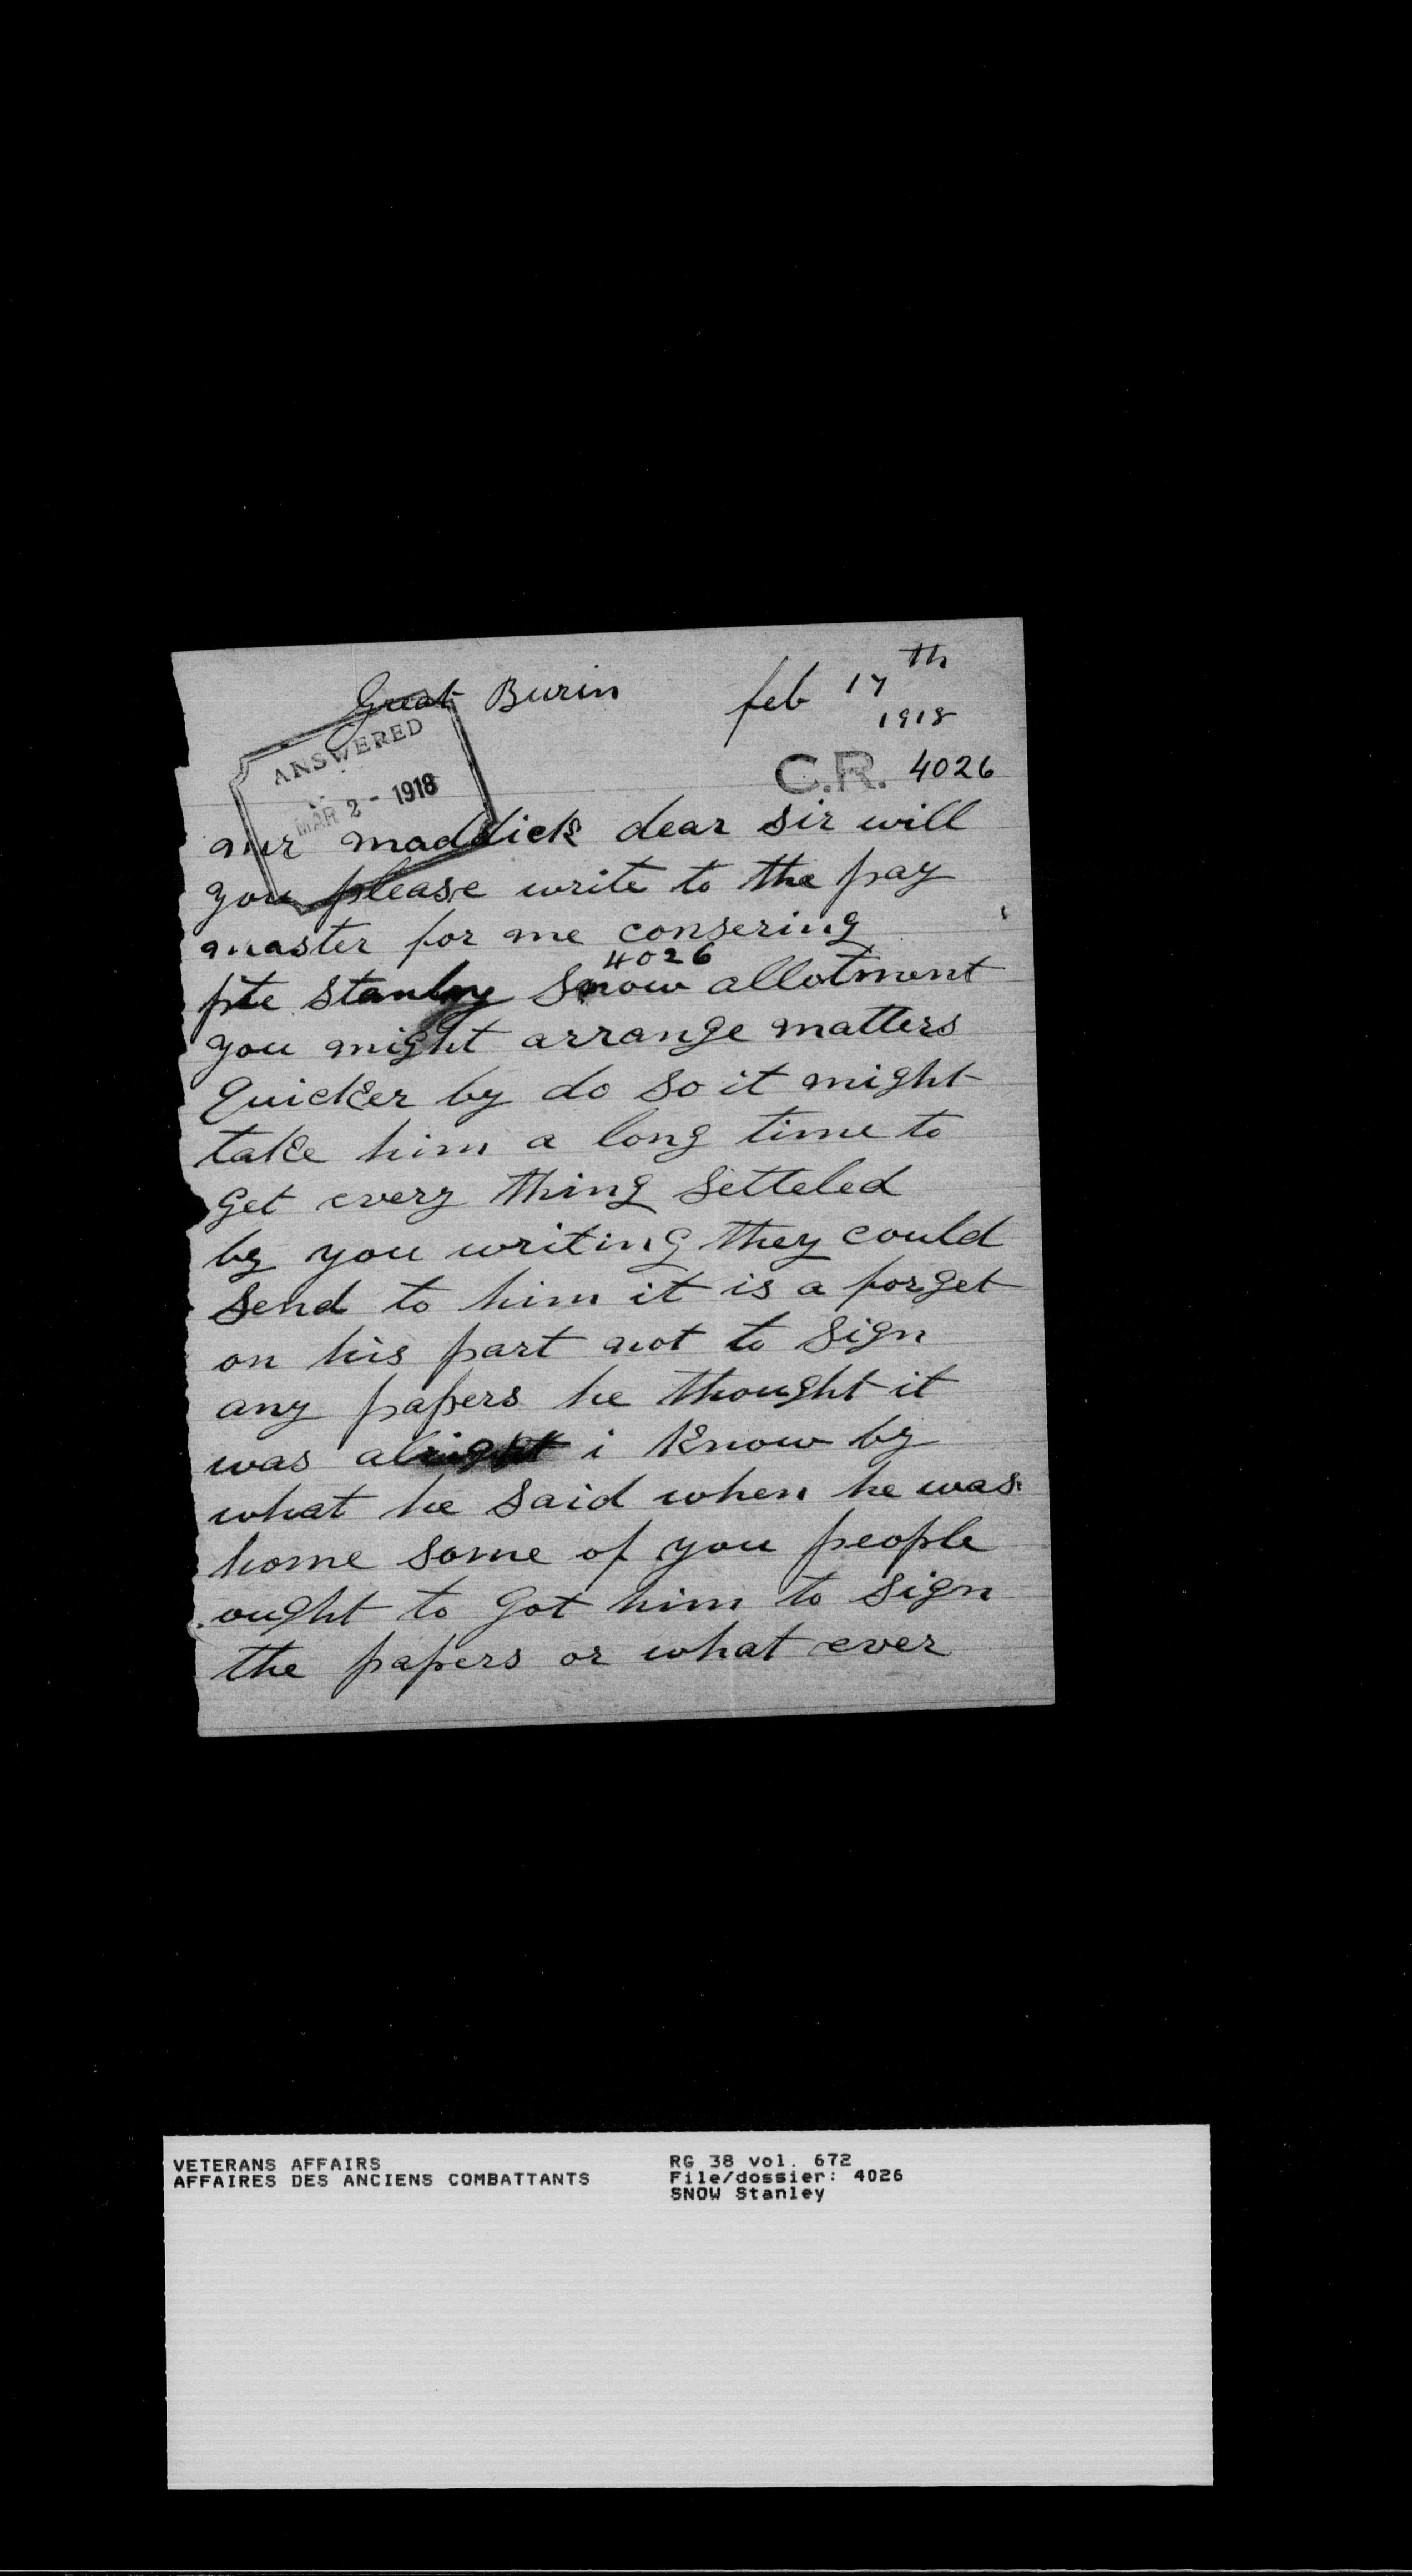 Great Burin feb 17th
1918
ANSWERED
MAR 2 - 1918
C.R. 4026
mr maddick dear sir will
you please write to the pay
master for me consering
4026
pte Stanley Snow allotment
you might arrange matters
Quicker by do so it might
take him a long time to
get every thing setteled
by you writing they could
send to him it is a forget
on his part not to sign
any papers he thought it
was alright i know by
what he said when he was
home some of you people
ought to got him to sign
the papers or what ever
VETERANS AFFAIRS RG 38 vol. 672
AFFAIRES DES ANCIENS COMBATTANTS File/dossier: 4026
SNOW Stanley